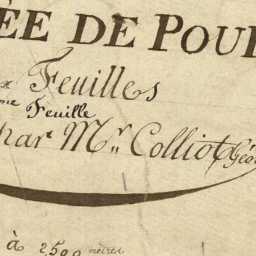 ÉE DE POUR
x Feuilles
me Feuille
par Mr. Colliot Géo
à 2500 mètres